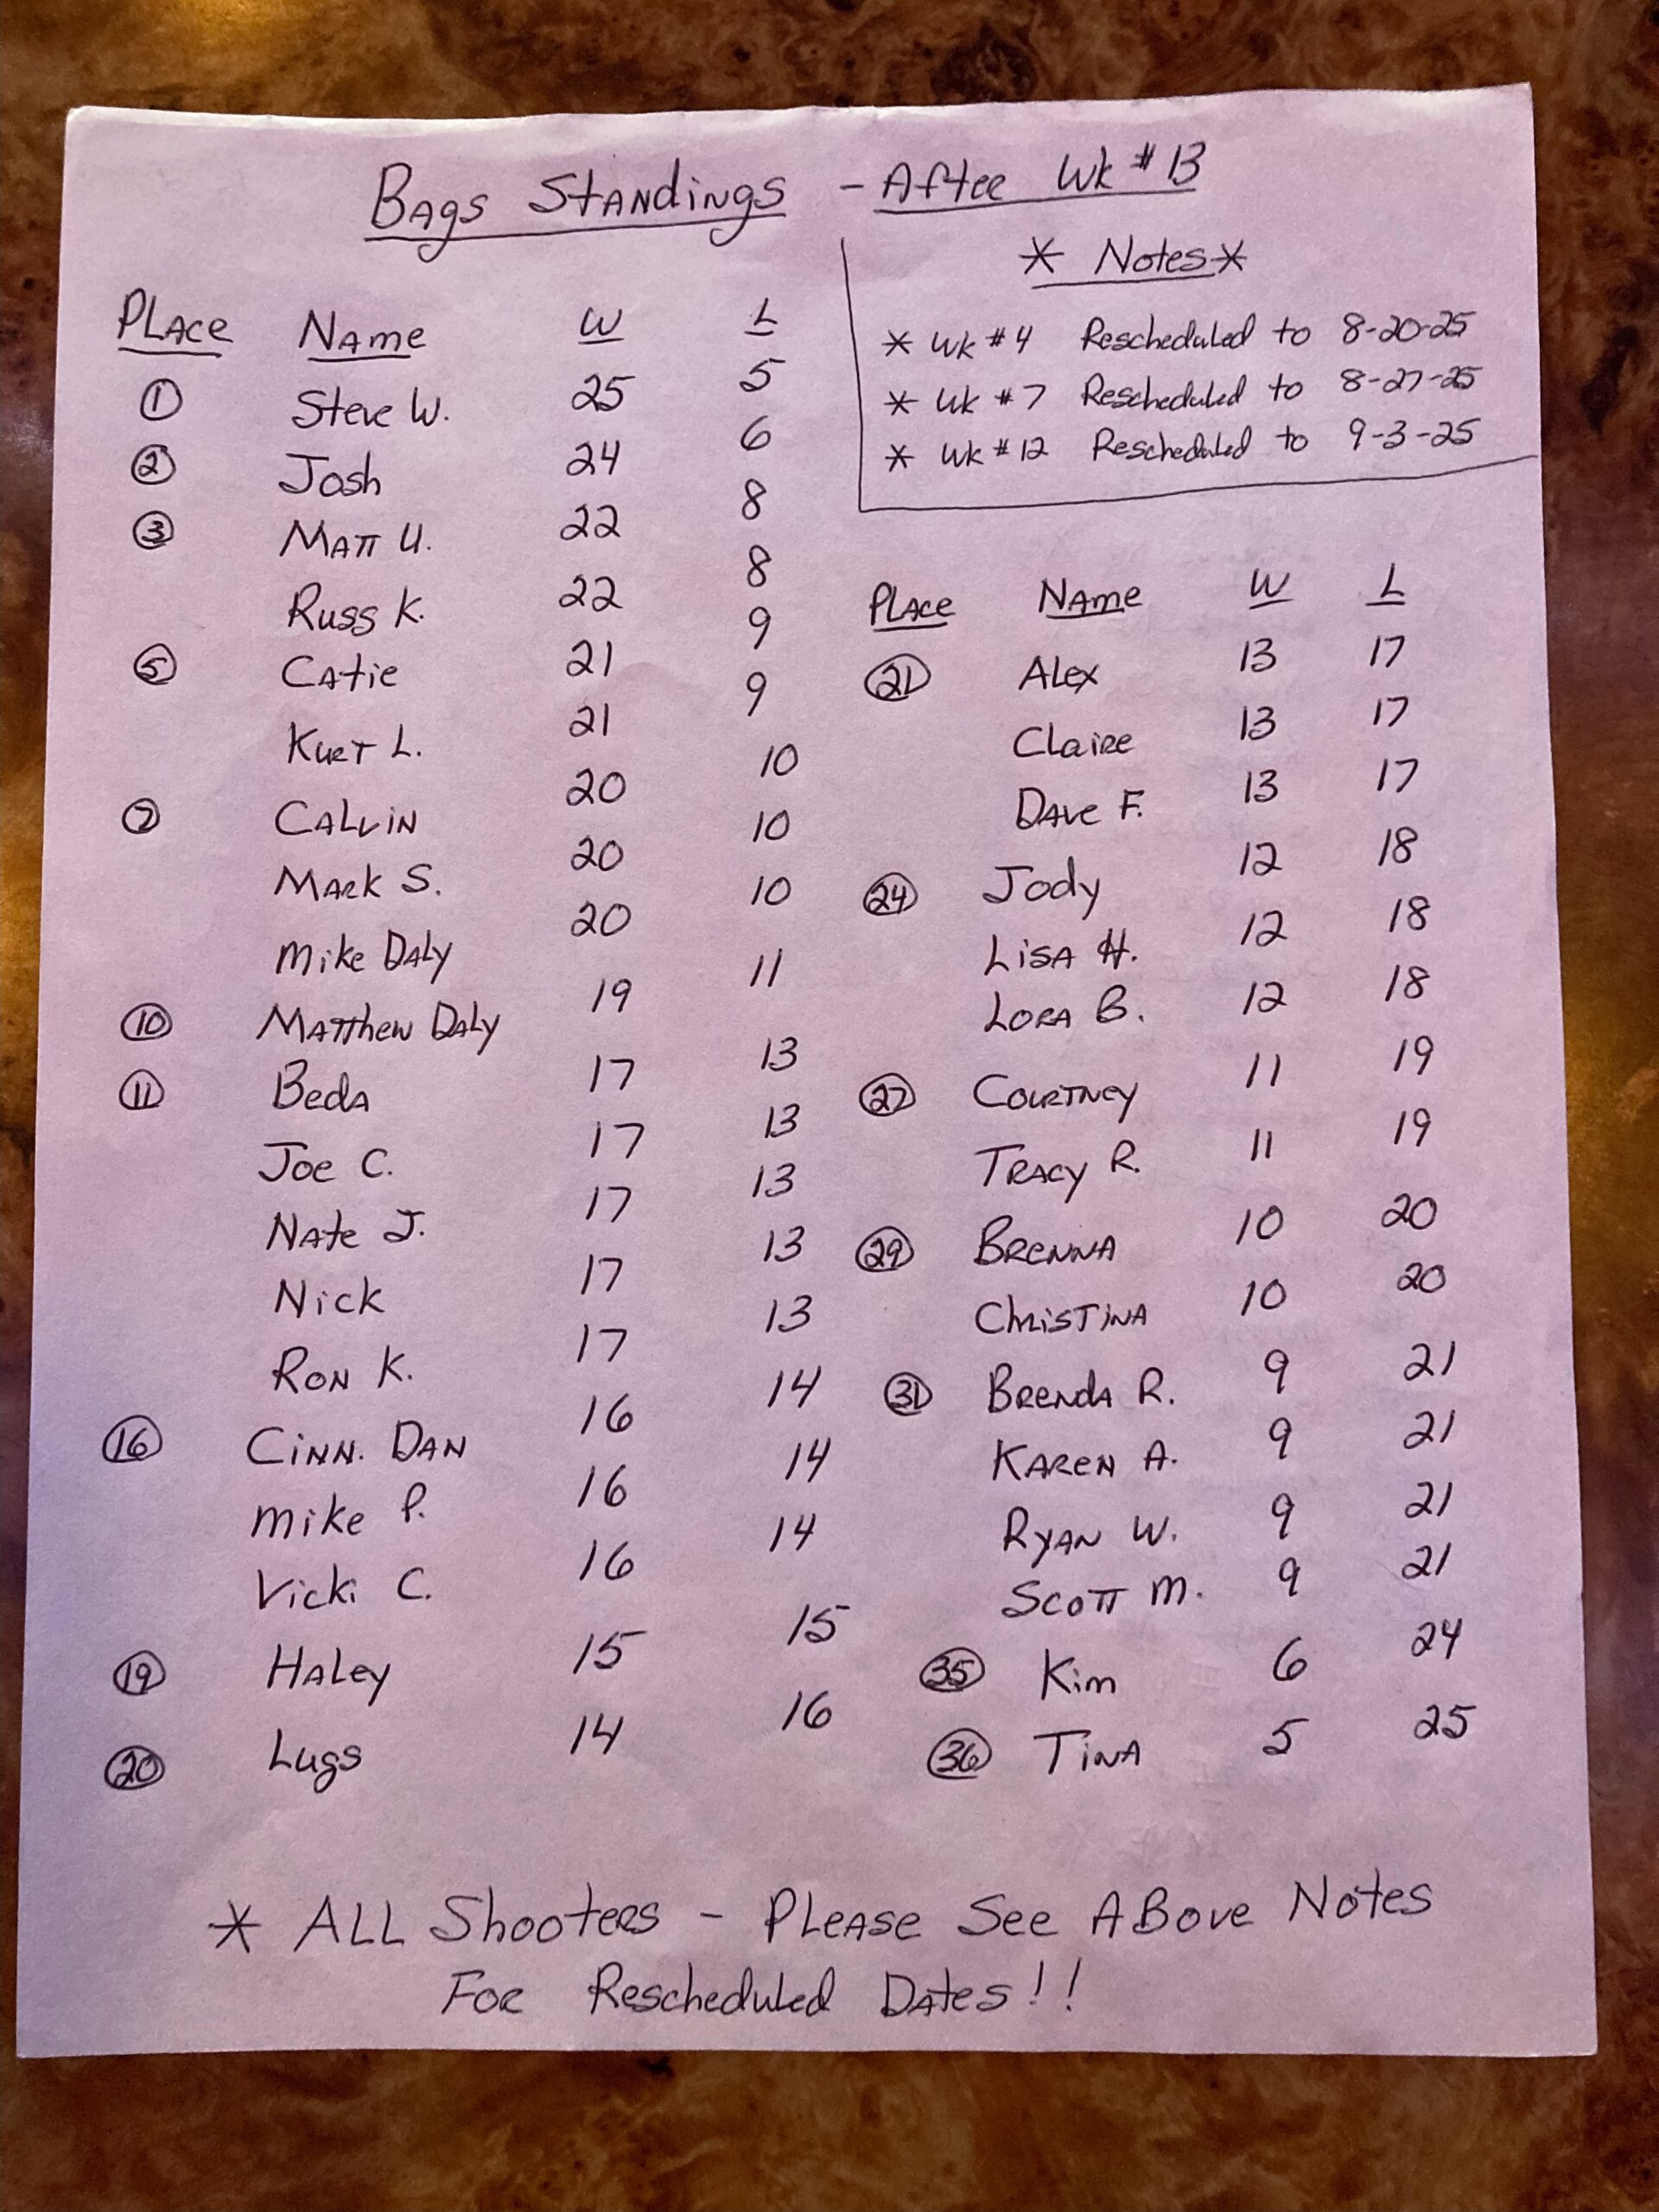 Bags Standings - After Wk # 13
* Notes *
* Wk # 4 Rescheduled to 8-20-25
* Wk # 7 Rescheduled to 8-27-25
* Wk # 12 Rescheduled to 9-3-25
Place Name W L
1 Steve W. 25 5
2 Josh 24 6
3 Matt U. 22 8
Russ K. 22 8
5 Catie 21 9
Kurt L. 21 9
7 Calvin 20 10
Mark S. 20 10
Mike Daly 20 10
10 Matthew Daly 19 11
11 Beda 17 13
Joe C. 17 13
Nate J. 17 13
Nick 17 13
Ron K. 17 13
16 Cinn. Dan 16 14
Mike P. 16 14
Vicki C. 16 14
19 Haley 15 15
20 Lugs 14 16
Place Name W L
21 Alex 13 17
Claire 13 17
Dave F. 13 17
24 Jody 12 18
Lisa H. 12 18
Lora B. 12 18
27 Courtney 11 19
Tracy R. 11 19
29 Brenna 10 20
Christina 10 20
31 Brenda R. 9 21
Karen A. 9 21
Ryan W. 9 21
Scott M. 9 21
35 Kim 6 24
36 Tina 5 25
* All Shooters - Please See Above Notes
For Rescheduled Dates!!